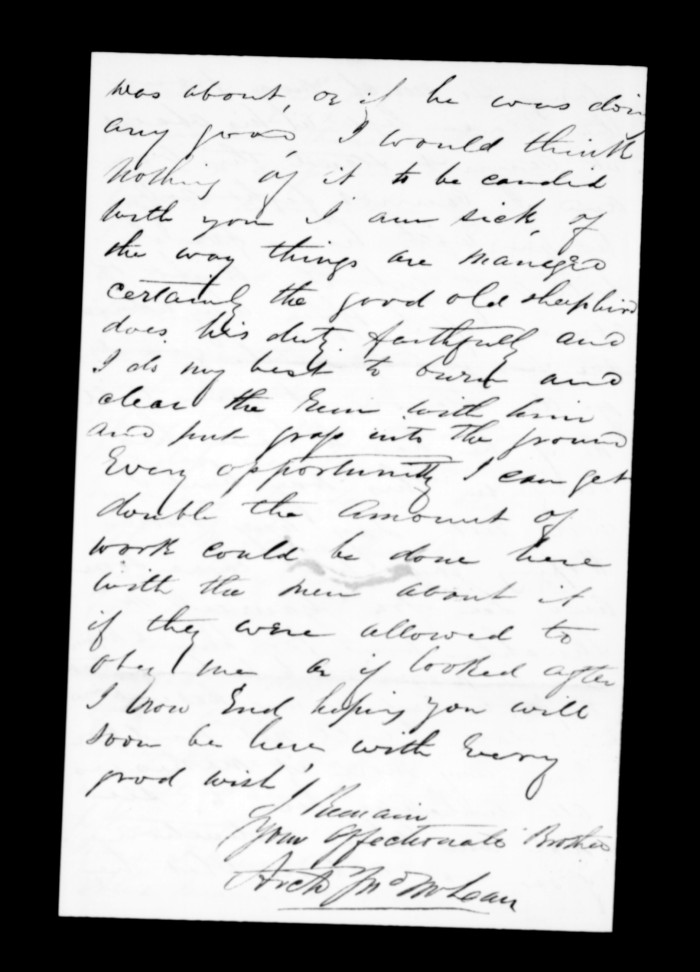 was about, or if he was doing
any good, I would think
nothing of it to be candid
with you I am sick of
the way things are managed
certainly the good old shephird
does his duty faithfully and
I do my best to burn and
clear the run with him
and put grass into the ground
Every opportunity I can get
double the amount of
work could be done here
with the men about it
if they were allowed to
obey me or if looked after
I now End hoping you will
soon be here with Every
good wish
I Remain
Your affectionate Brother
Archd Jno McLean